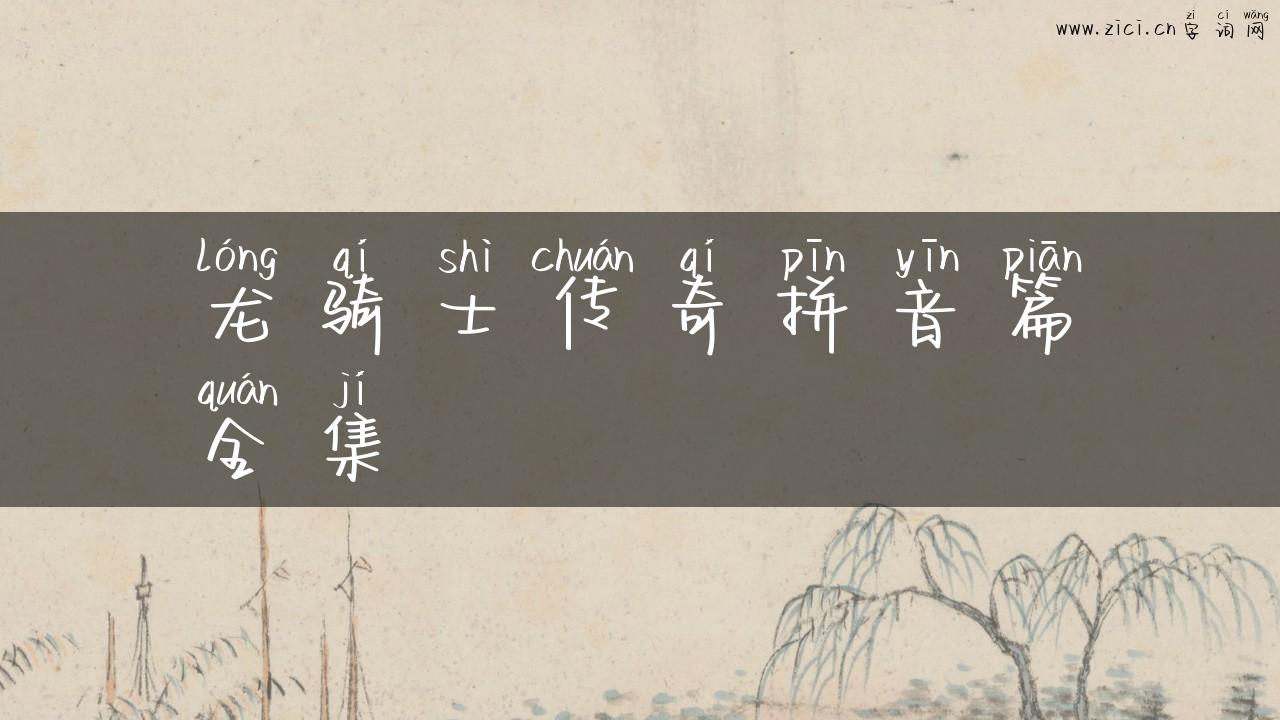 zì cí wǎng
www.zici.cn 字词网
lóng qí shì chuán qí pīn yīn piān
龙骑士传奇拼音篇
quán jí
全集